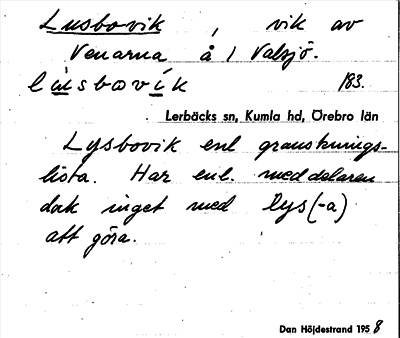 Lusbovik, vik av
Venarna å / Valsjö.
lùsbovík 183.
Lerbäcks sn, Kumla hd, Örebro län
Lysbovik enl gransknings-
lista. Har enl. meddelaren
dock inget med lys(-a)
att göra.
Dan Höjdestrand 1958